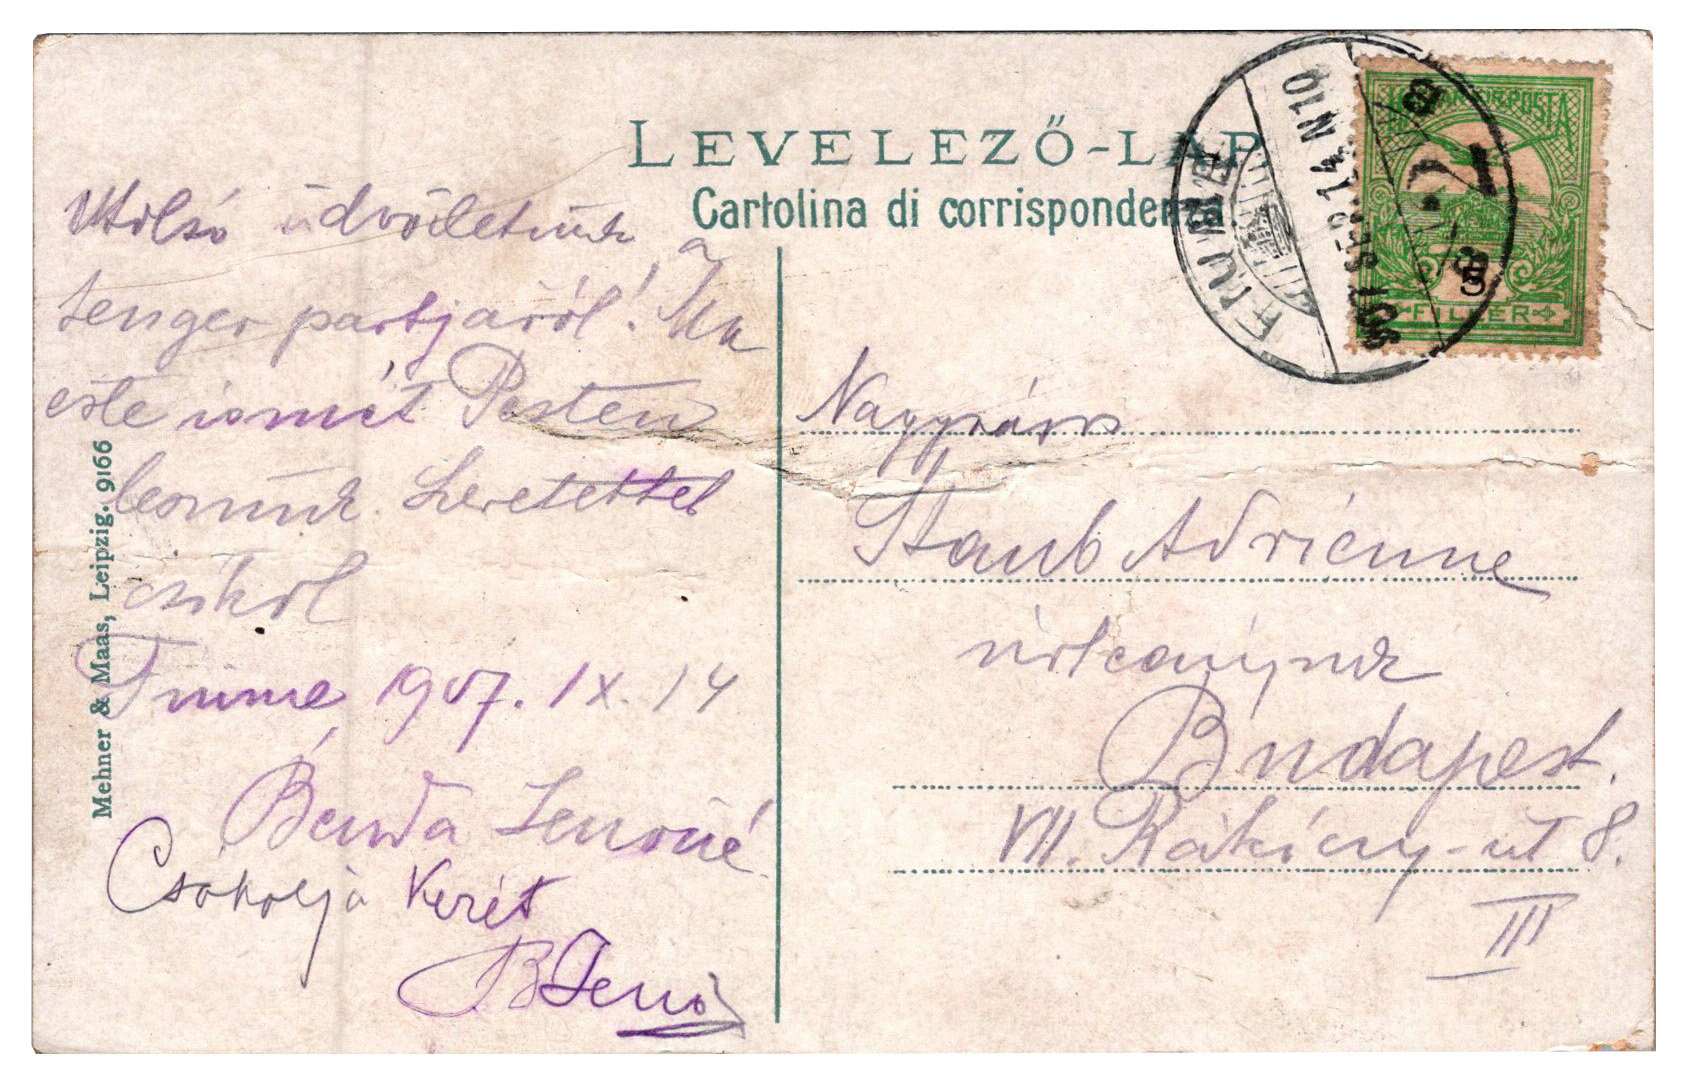 LEVELEZŐ-LAP
Cartolina di corrispondenza
FIUME
907 SEP 14 N10
MAGYAR KIR. POSTA
5
FILLÉR
Utolsó üdvözletünk a
tenger partjáról! Ma
este ismét Pesten
leszünk. Szeretettel
csókol
Fiume 1907. IX. 14
Benda Jenőné
Csókolja kezét
BJenő
Nagysás
Staub Adrienne
úrleánynak
Budapest.
VII. Rákóczy-út 8.
III
Mehner & Maas, Leipzig. 9166